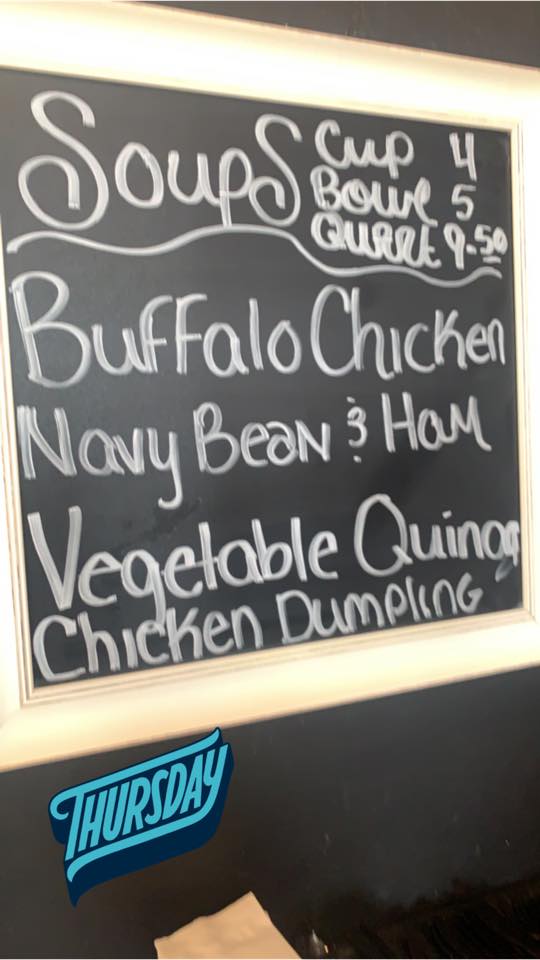 Soups
Cup 4
Bowl 5
Quart 9.50
Buffalo Chicken
Navy Bean & Ham
Vegetable Quinoa
Chicken Dumpling
THURSDAY